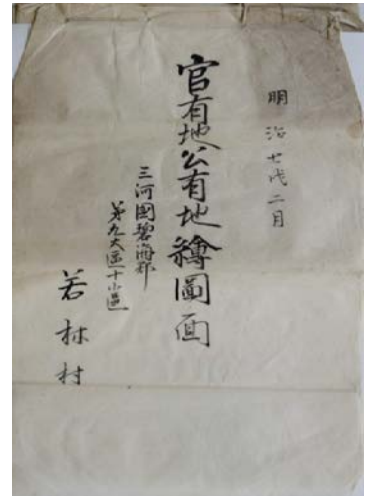 明治七戌二月
官有地公有地繪圖面
三河國碧海郡
第九大區十小區
若林村